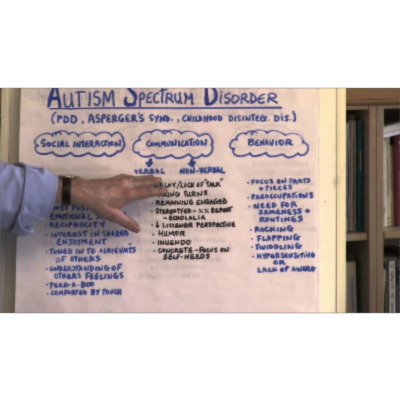 AUTISM SPECTRUM DISORDER
(PDD, ASPERGER'S SYND., CHILDHOOD DISINTEG. DIS.)
SOCIAL INTERACTION
EMOTIONAL
RECIPROCITY
· INTEREST IN SHARED
ENJOYMENT
· TUNED IN TO
OF OTHERS
· UNDERSTANDING OF
OTHERS FEELINGS
· PEEK-A-BOO
· COMFORTED BY TOUCH
COMMUNICATION
VERBAL NON-VERBAL
/LACK OF "TALK"
TURNS
· REMAINING ENGAGED
REPEAT
- ECHOLALIA
· ↓ LISTENER PERSPECTIVE
· HUMOR
· INUENDO
· CONCRETE - FOCUS ON
SELF-NEEDS
BEHAVIOR
· FOCUS ON PARTS
+ PIECES
· PREOCCUPATIONS
· NEED FOR
SAMENESS +
ROUTINES
· ROCKING
· FLAPPING
· TWIDDLING
· HYPERSENSITIVE
OR
LACK OF AWARE